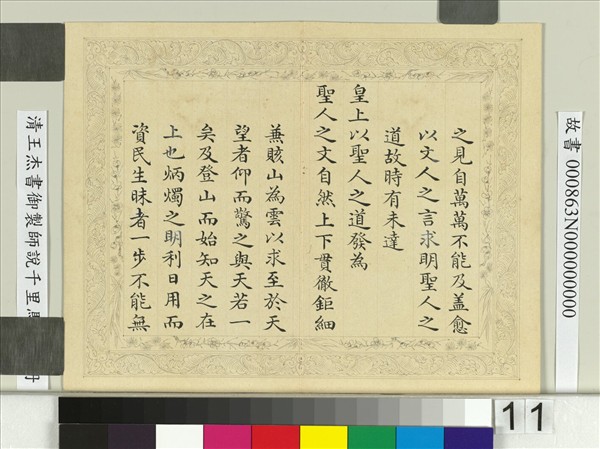 之見自萬萬不能及盖愈
以文人之言求明聖人之
道故時有未達
皇上以聖人之道發為
聖人之文自然上下貫徹鉅細
兼賅山為雲以求至於天
望者仰而驚之與天若一
矣及登山而始知天之在
上也炳燭之明利日用而
資民生昧者一步不能無
故書 000863N000000000
清王杰書御製師說千里馬
冊
11